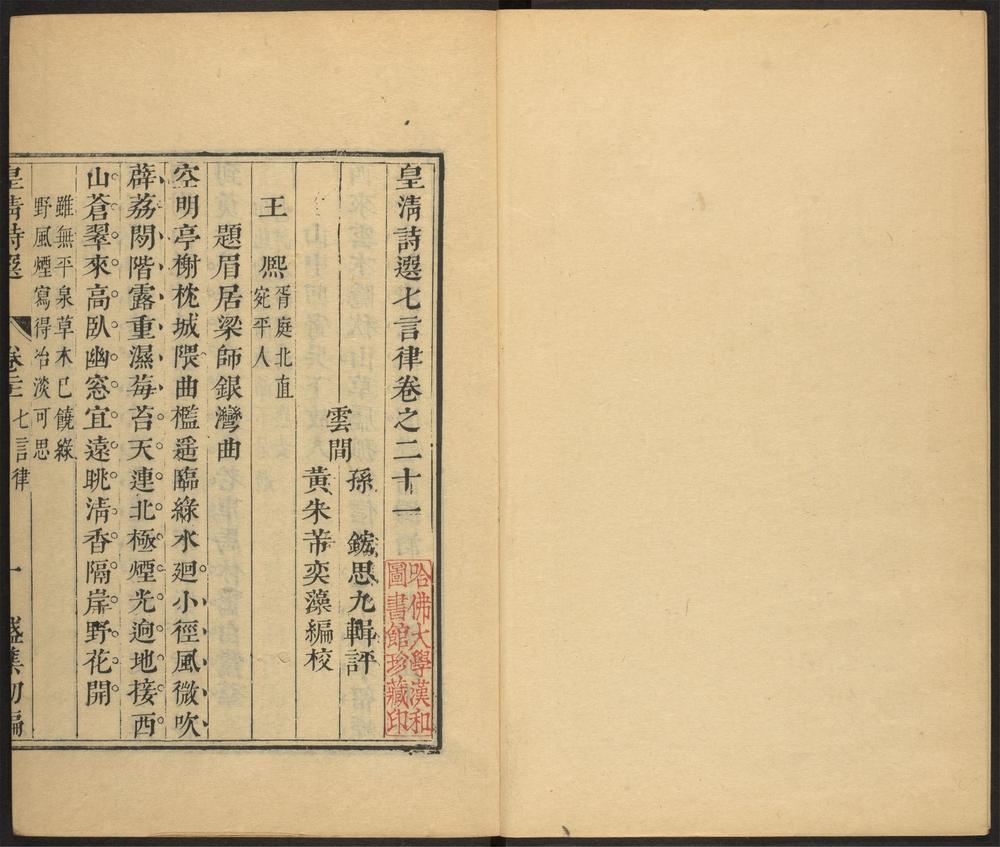 皇清詩選七言律卷之二十一
哈佛大學漢和
圖書館珍藏印
孫　鋐思九輯評
雲間
黃朱芾奕藻編校
王　熈
胥庭北直
宛平人
題眉居梁師銀灣曲
空明亭榭枕城隈曲檻遥臨綠水廻小徑風微吹
薜荔閒階露重濕莓苔天連北極煙光逈地接西
山蒼翠來高臥幽窓宜遠眺淸香隔岸野花開
雖無平泉草木已饒綠
野風煙寫得冶淡可思
皇清詩選　卷廿一　七言律　一　盛集初編